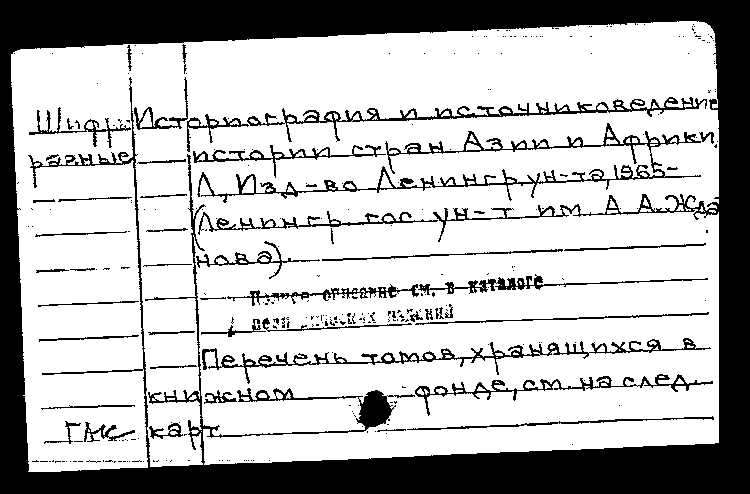 Шифры Историография и источниковедение
разные истории стран Азии и Африки.
Л, Изд-во Ленингр. ун-та, 1965-
(Ленингр. гос. ун-т им. А. А. Жда
нова).
Полное описание см. в каталоге
периодических изданий
Перечень томов, хранящихся в
книжном фонде, см. на след.
карт